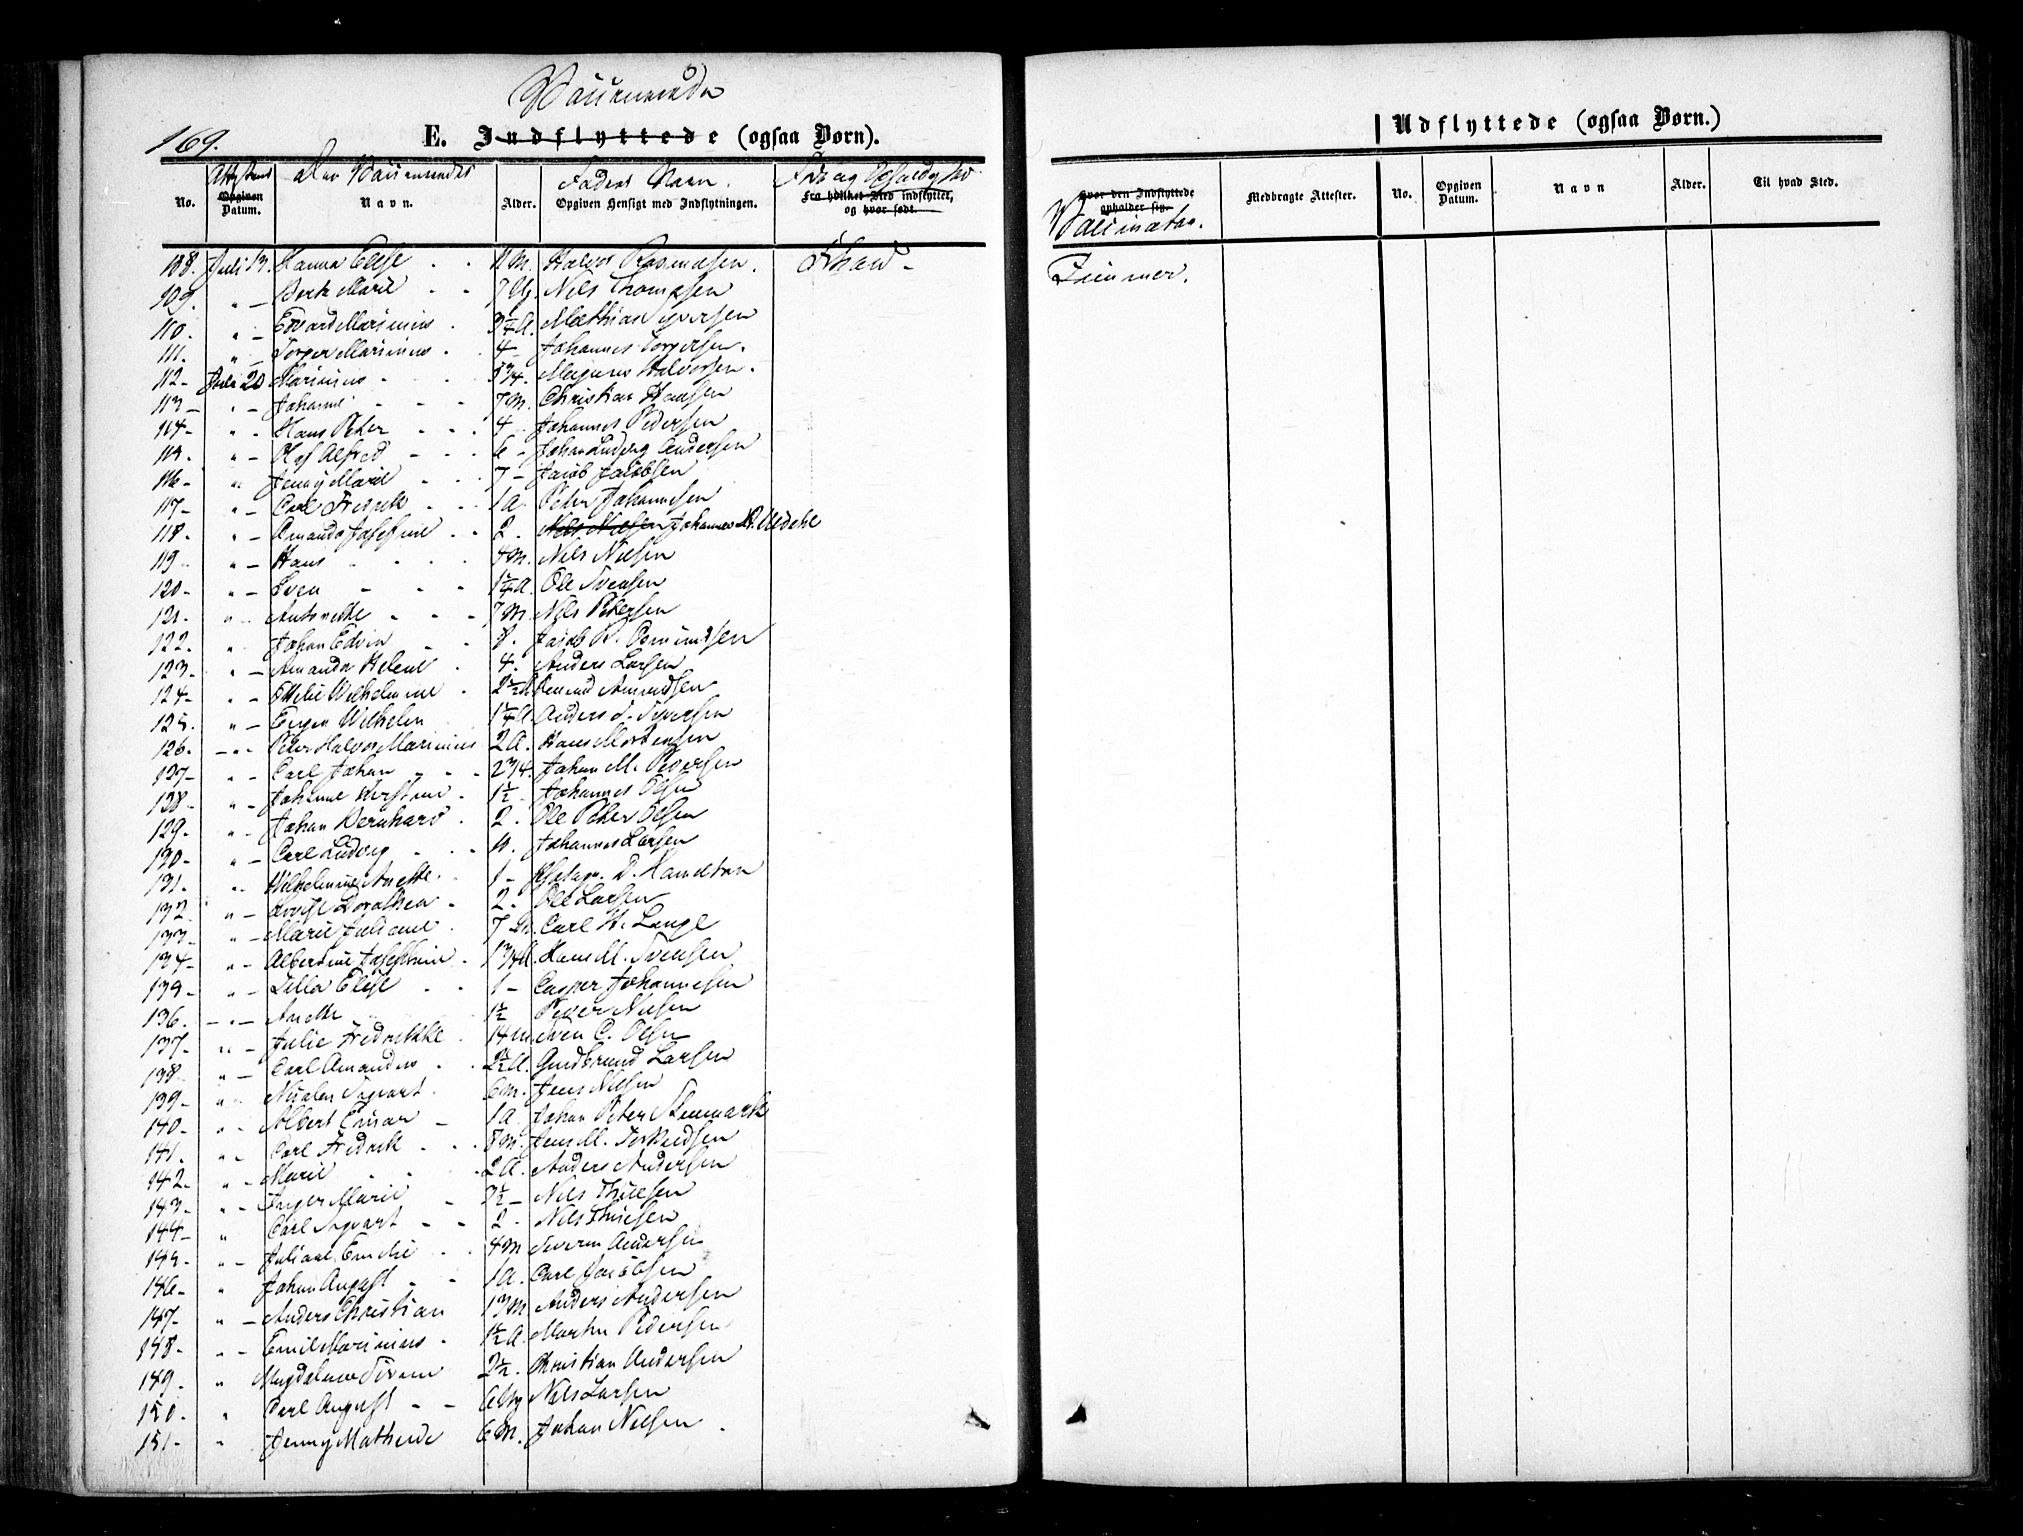 Vaccinerede
169.
E. Indflyttede (ogsaa Børn).
Udflyttede (ogsaa Børn.)
No. Attestens Opgiven Datum. De Vaccineredes Navn. Alder. Faders Navn. Opgiven Hensigt med Indflytningen. Fra hvilket Sted indflyttet, og hvor født.
Hvor den Indflyttede opholder sig. Medbragte Attester. No. Opgiven Datum. Navn Alder. Til hvad Sted.
Vaccinatør.
108. Juli 13. Hanna Elise 11 M. Halvor Rasmussen. Thrane
Zimmer.
109. " Berte Marie 7 Ug. Niels Thompsen
110. " Edvard Marinius 3 1/4 A. Mathias Syversen
111. " Torger Marinius 4 - Johannes Torgersen.
112 - Juli 20 Marinius - 3 3/4. Magnus Halvorsen.
113 - " - Johanne 7 M. Christian Hansen
114 - " - Hans Peter 4 - Johannes Pedersen
115. " - Olaf Alfred 6 - Johan Ludvig Andersen
116 - " Jenny Marie 7 - Jacob Jacobsen
117 - " - Carl Fredrik 1 A. Peter Johannesen
118. " - Amanda Josephine 2. Nils Nielsen Johannes
119 " - Hans 4 M. Nils Nielsen
120 - " - Sven 1 1/4 A. Ole Svensen
121 - " Antonette 7 M. Nils Petersen
122. " Johan Edvin 8. Jacob R. Osmundsen
123. " - Amanda Helene 4. Anders Larsen
124 - " - Othilie Wilhelmine 2 1/2 A. Amund Amundsen
125. " - Eugen Wilhelm 1 1/4 A. Anders S. Syversen
126. - " - Peter Halvor Marinius 2 A. Hans Mortensen
127 - " - Carl Johan 2 3/4. Johan M. Pedersen
128 - " - Johanne Kirstine 1 1/2 - Johannes Olsen
129. " - Johan Bernhard 2. Ole Peter Olsen
130 - " - Carl Ludvig Johannes Larsen
131. " Wilhelmine Anette. 1 - D. Hameltan
132 - " - Lovise Dorothea 2. Ole Larsen
133 - " - Marie Juliane 7 M. Carl H. Lange
134 - " - Albertine Josephine 1 3/4 A. Hans M. Svensen
135 - " - Lilla Elise 1 - Casper Johannesen
136. - " - Anette 1 1/2 Peder Nielsen
137 - " - Julie Fredrikke 14 M. Sven C. Olsen
138 " - Carl Amandus 2 1/2 A. Gudbrand Larsen
139 - " Nicolai Sigvart 6 M. Jens Nilsen
140 - " - Albert Einar 1 A. Johan Peter Stenmark
141 - " - Carl Fredrik 8 M. Jens M. Torkildsen
142 - " - Marie 2 A. Anders Andersen
143 - " - Inger Marie 3 1/2 - Nils Thuesen
144 - " Carl Sigvart 2 - Nils Thuesen
145 - " - Juliane Emilie 4 M Severin Andersen
146 - " Johan August 1 A. Carl Jacobsen
147 - " - Anders Christian 13 M Anders Andersen
148 - " - Emil Marinius 1 1/2 A. Martin Pedersen
149. " Magdalena Sirene 2 1/2. Christian Andersen
150. " Carl August 6 Ug Nils Larsen
151 - " Jenny Mathilde 6 M. Johan Nielsen